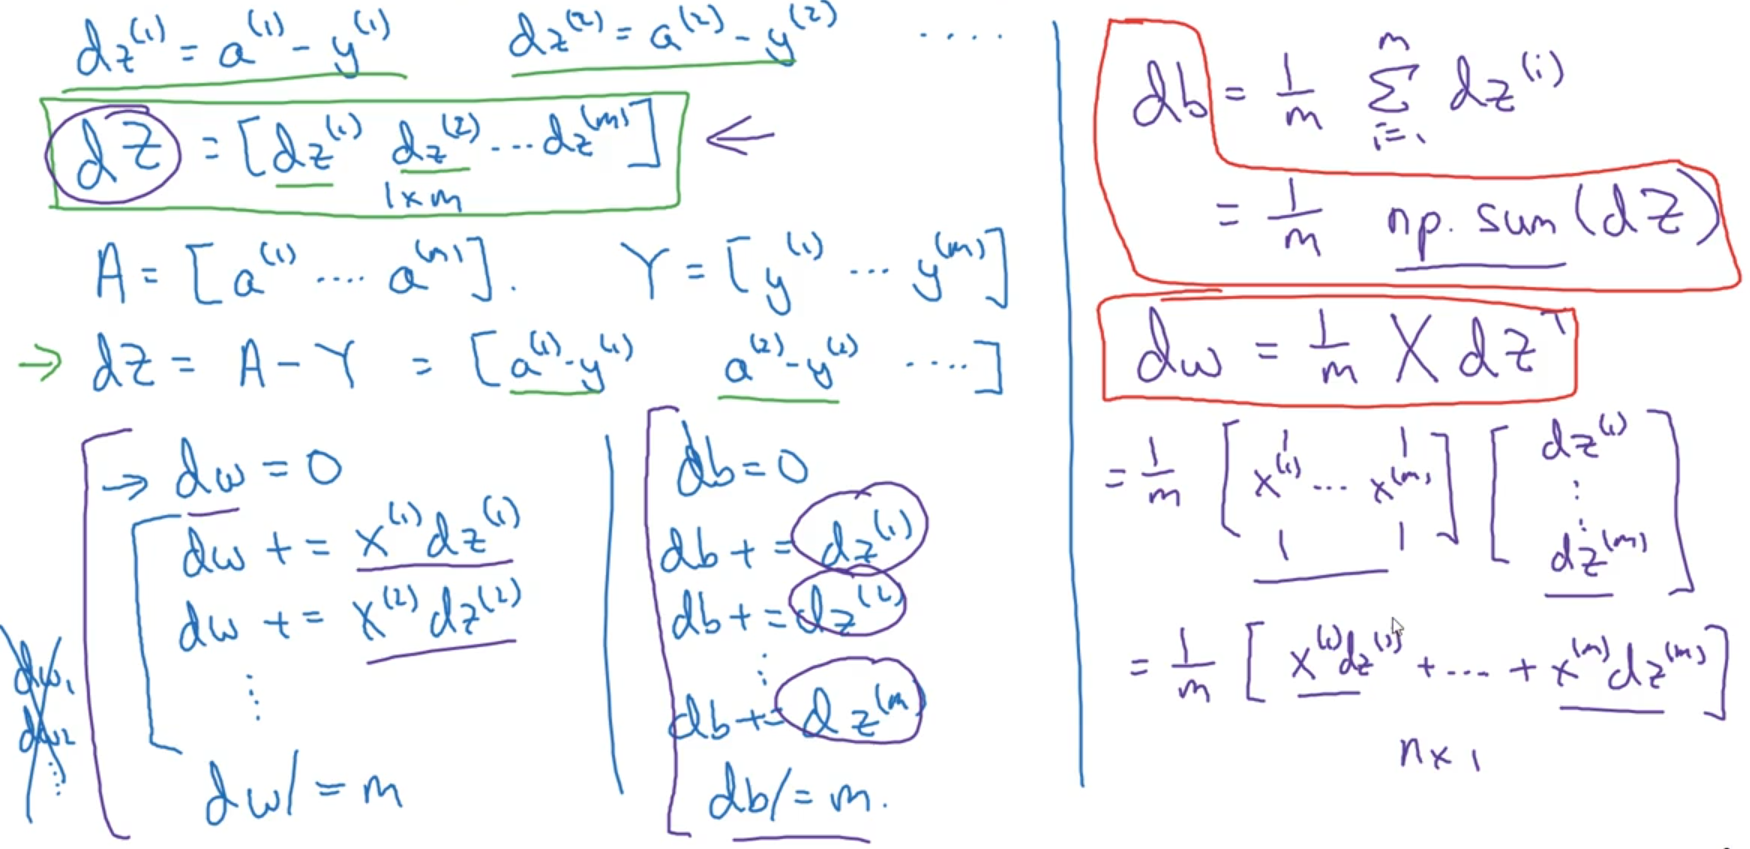 dz⁽¹⁾ = a⁽¹⁾ - y⁽¹⁾ dz⁽²⁾ = a⁽²⁾ - y⁽²⁾ ....
dZ = [dz⁽¹⁾ dz⁽²⁾ ... dz⁽ᵐ⁾] ←
1×m
A = [a⁽¹⁾ .... a⁽ᵐ⁾]. Y = [y⁽¹⁾ ... y⁽ᵐ⁾]
→ dZ = A - Y = [a⁽¹⁾-y⁽¹⁾ a⁽²⁾-y⁽²⁾ ....]
→ dw = 0
dw += x⁽¹⁾dz⁽¹⁾
dw += x⁽²⁾dz⁽²⁾
⋮
dw /= m
dw₁
dw₂
⋮
db = 0
db += dz⁽¹⁾
db += dz⁽²⁾
⋮
db += dz⁽ᵐ⁾
db /= m.
db = 1/m Σᵢ₌₁ᵐ dz⁽ⁱ⁾
= 1/m np.sum(dZ)
dw = 1/m X dZᵀ
= 1/m [x⁽¹⁾ ... x⁽ᵐ⁾] [dz⁽¹⁾ ⋮ dz⁽ᵐ⁾]
= 1/m [x⁽¹⁾dz⁽¹⁾ + ... + x⁽ᵐ⁾dz⁽ᵐ⁾]
n×1